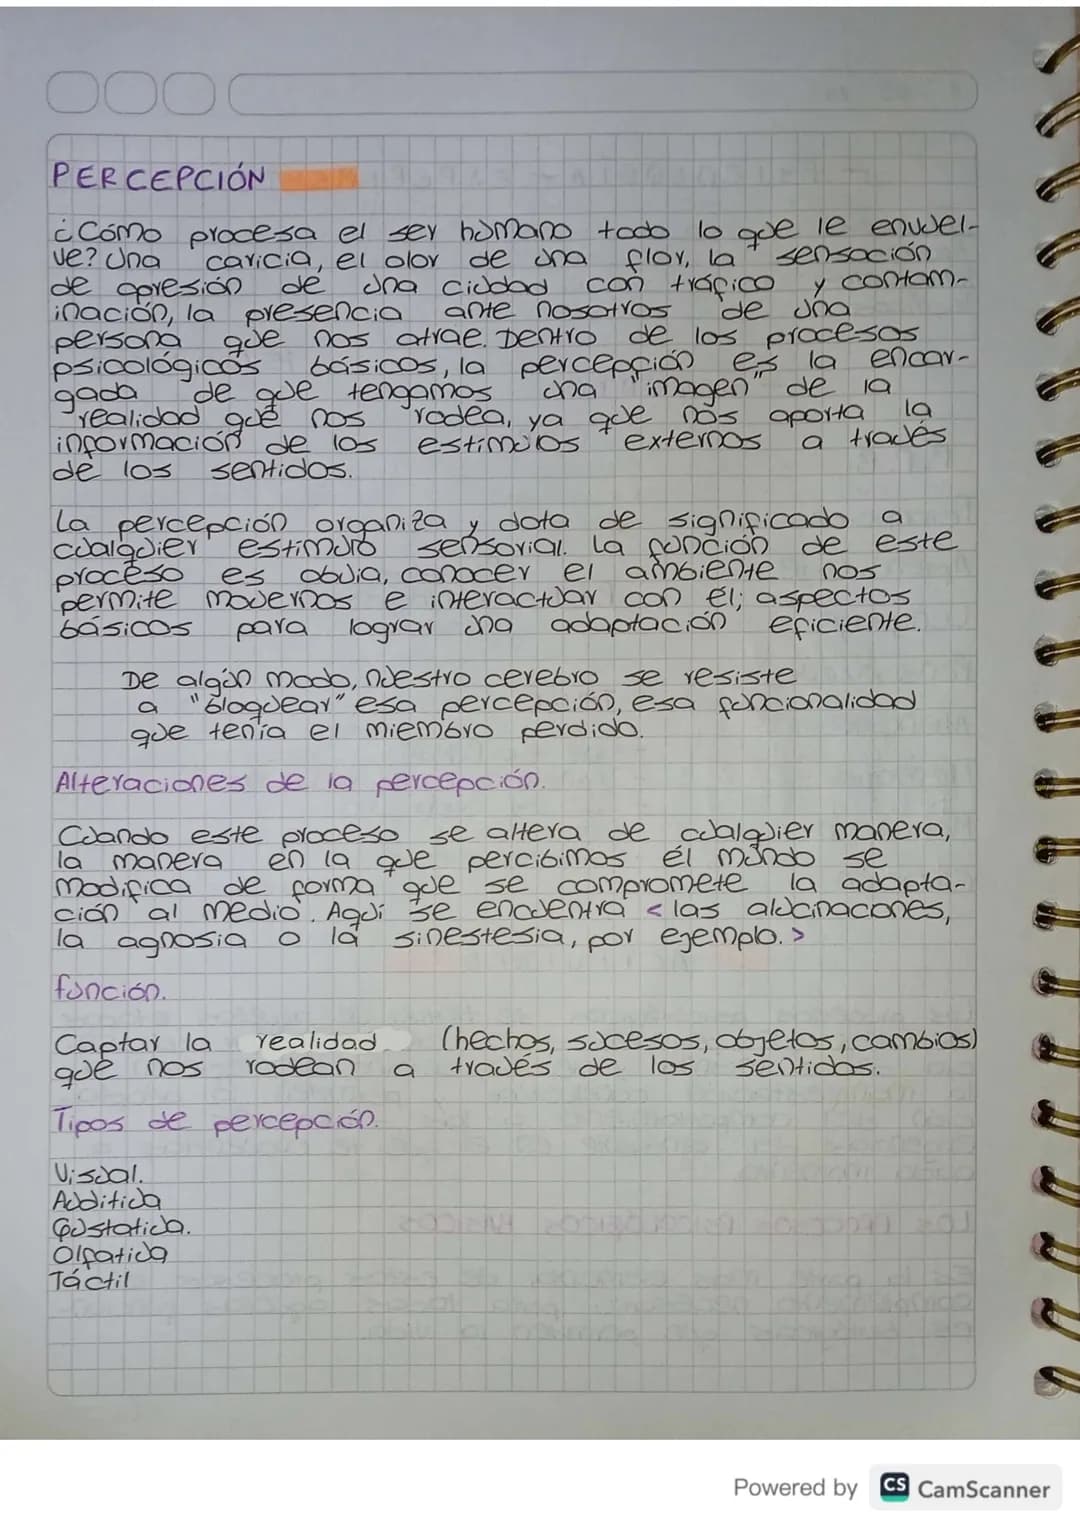 PERCEPCIÓN
¿Cómo procesa el ser humano todo lo que le envuel-
ve? Una caricia, el olor de una flor, la sensación
de opresión de una ciudad con tráfico y contam-
inación, la presencia ante nosotros de una
persona que nos atrae. Dentro de los procesos
psicológicos básicos, la percepción es la encar-
gada de que tengamos una "imagen" de la
realidad que nos rodea, ya que nos aporta la
información de los estimulos externos a través
de los sentidos.
La percepción organiza y dota de significado a
cualquier estimulo sensorial. La función de este
proceso es obvia, conocer el ambiente nos
permite movernos e interactuar con él; aspectos
básicos para lograr una adaptación eficiente.
De algún modo, nuestro cerebro se resiste
a "bloquear" esa percepción, esa funcionalidad
que tenía el miembro perdido.
Alteraciones de la percepción.
Cuando este proceso se altera de cualquier manera,
la manera en la que percibimos él mundo se
modifica de forma que se compromete la adapta-
ción al medio. Aquí se encuentra < las alucinaciones,
la agnosia o la sinestesia, por ejemplo. >
función.
Captar la realidad (hechos, sucesos, objetos, cambios)
que nos rodean a través de los sentidos.
Tipos de percepción.
Visual.
Auditiva
Gustativa.
Olfativa
Táctil
Powered by CS CamScanner